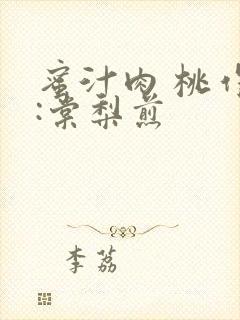 蜜汁肉 桃 作
:棠梨煎
李荔